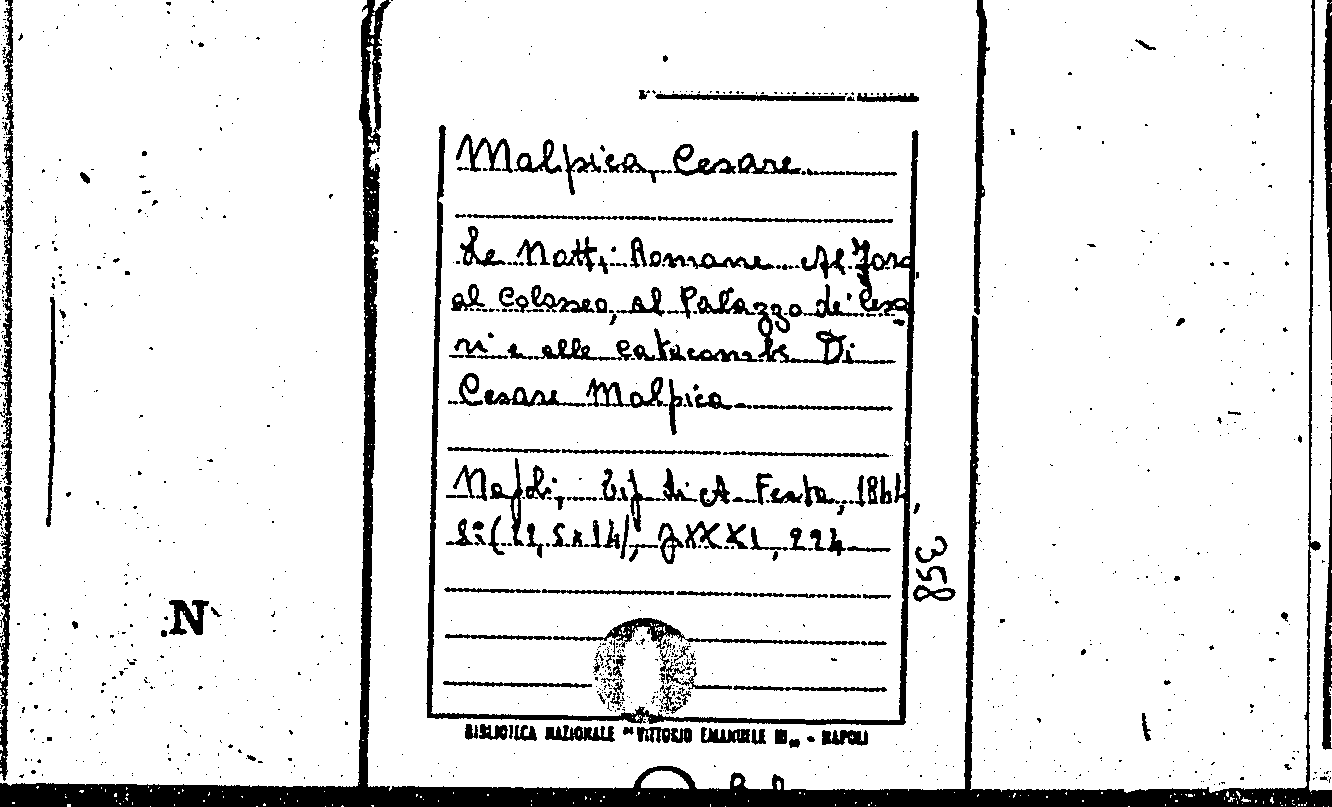 Malpica, Cesare
Le Notti Romane. Al Foro
al Colosseo, al Palazzo de' Cesa
ri e alle catacombe Di
Cesare Malpica
Napoli, Tip di A. Festa, 1844,
8:(22,5x14), XXXI, 224
358
N
BIBLIOTECA NAZIONALE "VITTORIO EMANUELE III" - NAPOLI